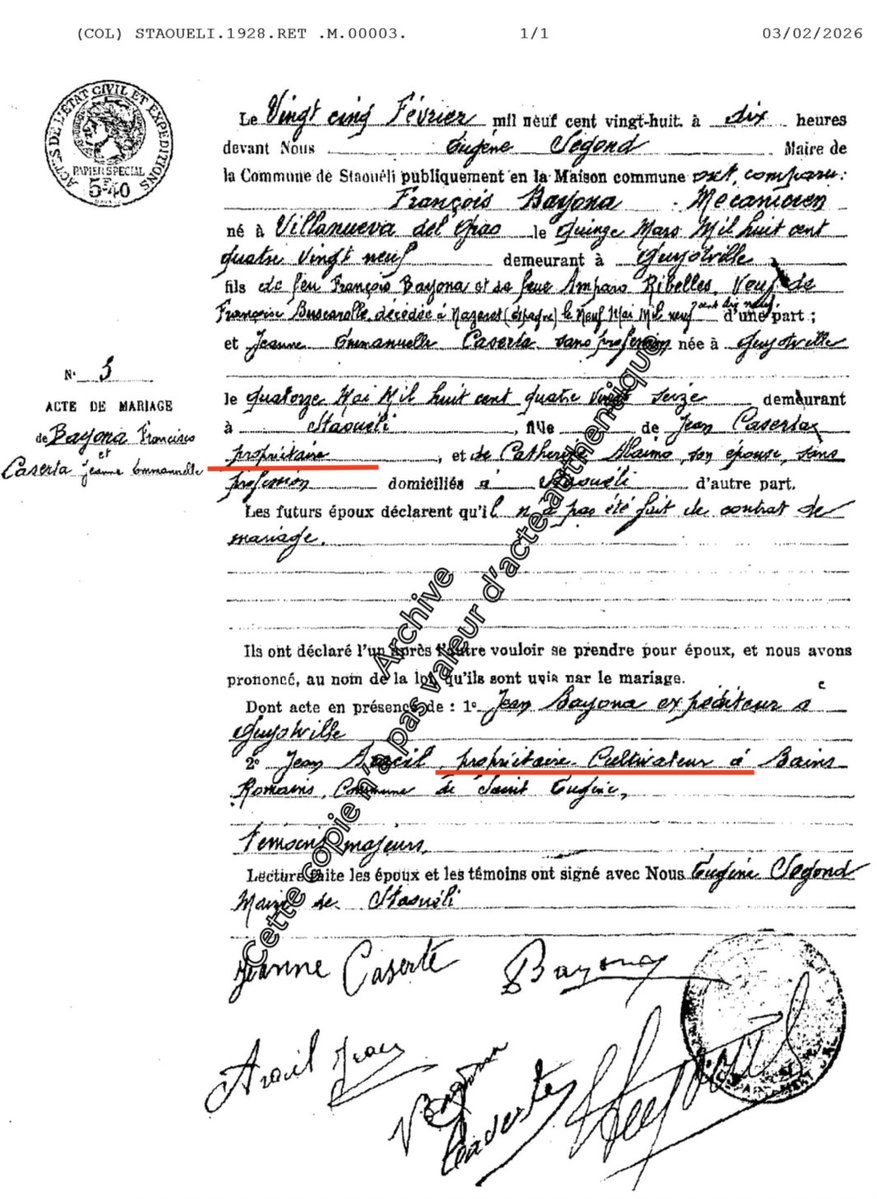 (COL) STAOUELI.1928.RET .M.00003. 1/1 03/02/2026
ACTES DE L'ETAT CIVIL ET EXPEDITIONS
PAPIER SPECIAL
5F40
Le Vingt cinq Février mil neuf cent vingt-huit, à dix heures
devant Nous Eugène Segond Maire de
la Commune de Staouéli publiquement en la Maison commune ont comparu:
François Bayona Mécanicien
né à Villanueva del Grao le quinze Mars Mil huit cent
quatre vingt neuf demeurant à Guyotville
fils de feu François Bayona et de feue Amparo Ribelles, Veuf de
Françoise décédée à Nazaret (Espagne) le neuf Mai Mil neuf cent dix neuf d'une part ;
et Jeanne Emmanuelle Caserta sans profession née à Guyotville
N° 3
ACTE DE MARIAGE
de Bayona Francisco
et
Caserta Jeanne Emmanuelle
le quatorze Mai Mil huit cent quatre vingt seize demeurant
à Staouéli, fille de Jean Caserta,
propriétaire, et de Catherine Maimo, son épouse, sans
profession domiciliés à Staouéli d'autre part.
Les futurs époux déclarent qu'il n'a pas été fait de contrat de
mariage.
Ils ont déclaré l'un après l'autre vouloir se prendre pour époux, et nous avons
prononcé, au nom de la loi, qu'ils sont unis par le mariage.
Dont acte en présence de : 1° Jean Bayona expéditeur à
Guyotville
2° Jean Aracil, propriétaire Cultivateur à Bains
Romains, Commune de Saint Eugène,
témoins majeurs.
Lecture faite les époux et les témoins ont signé avec Nous Eugène Segond
Maire de Staouéli
Jeanne Caserte
Bayona
Aracil Jean
Archive
Cette copie n'a pas valeur d'acte authentique